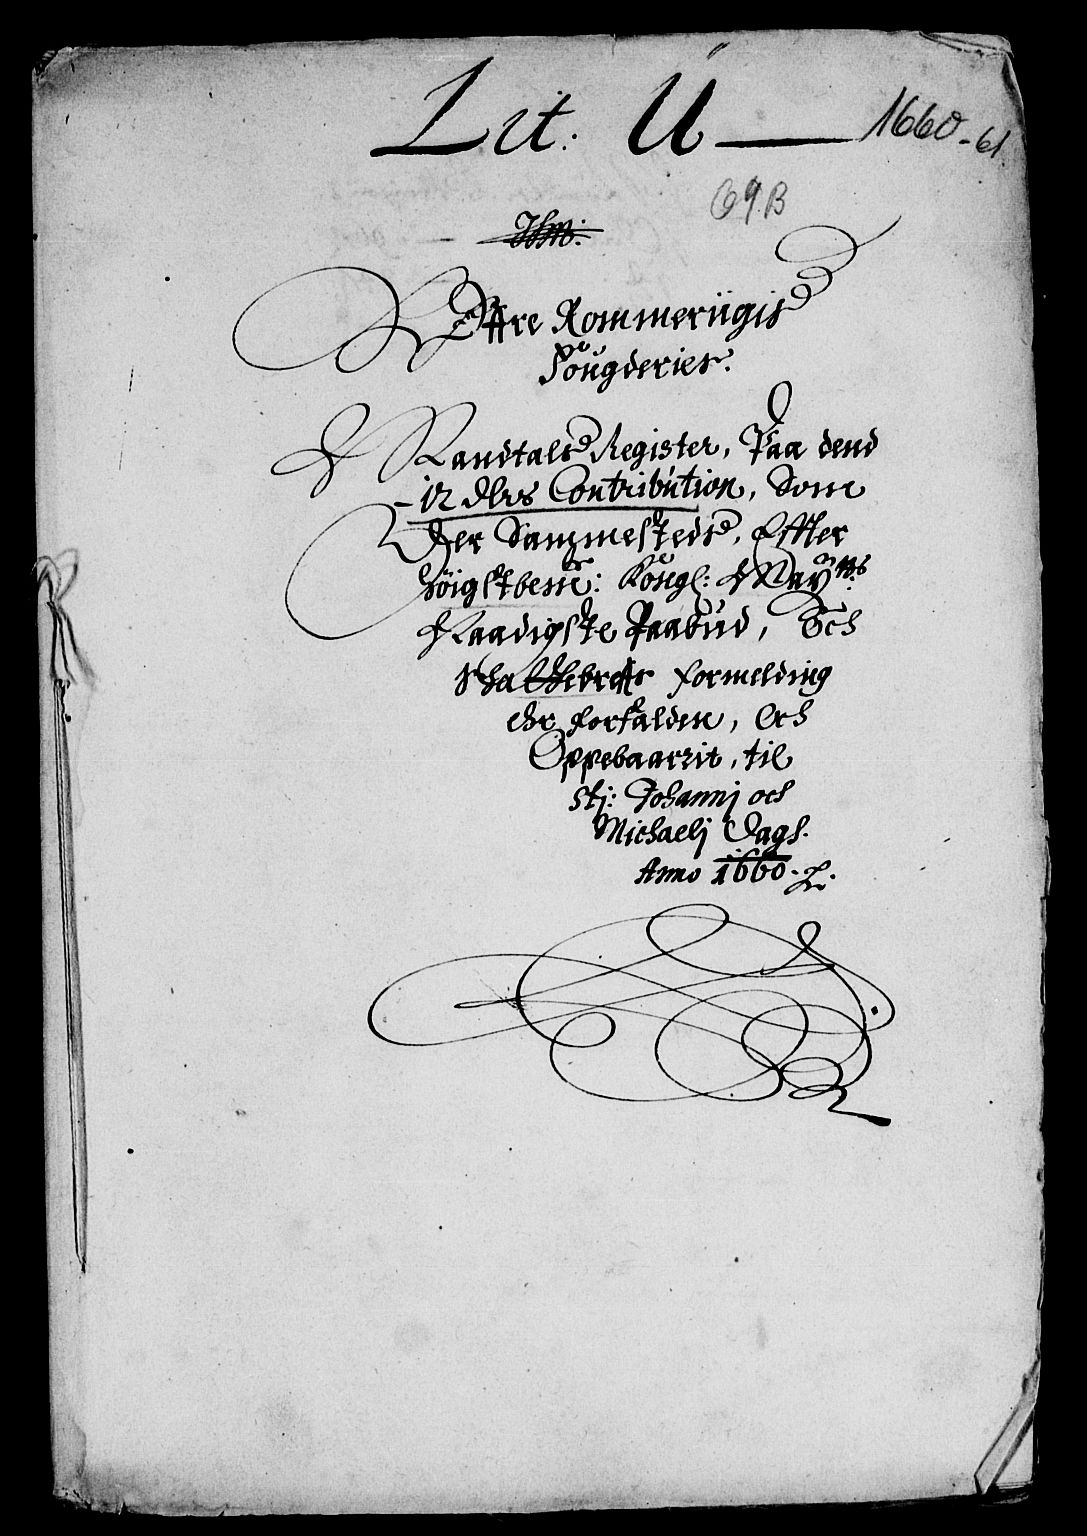 Lit: Ü — 1660-61
69.B
Øffre Rommeriigis
Fougderies.
Mandtals Register, Paa dend
12 dlrs Contribution, Som
Der Sammesteds, Effter
höigstbem: Kongl: May:ts
Naadigste Paabud, Och
Schatthebrefs formelding
ehr forfalden, och
Oppebaarrit, til
Stj: Johannj och
Michaelj Dags.
Anno 1660.